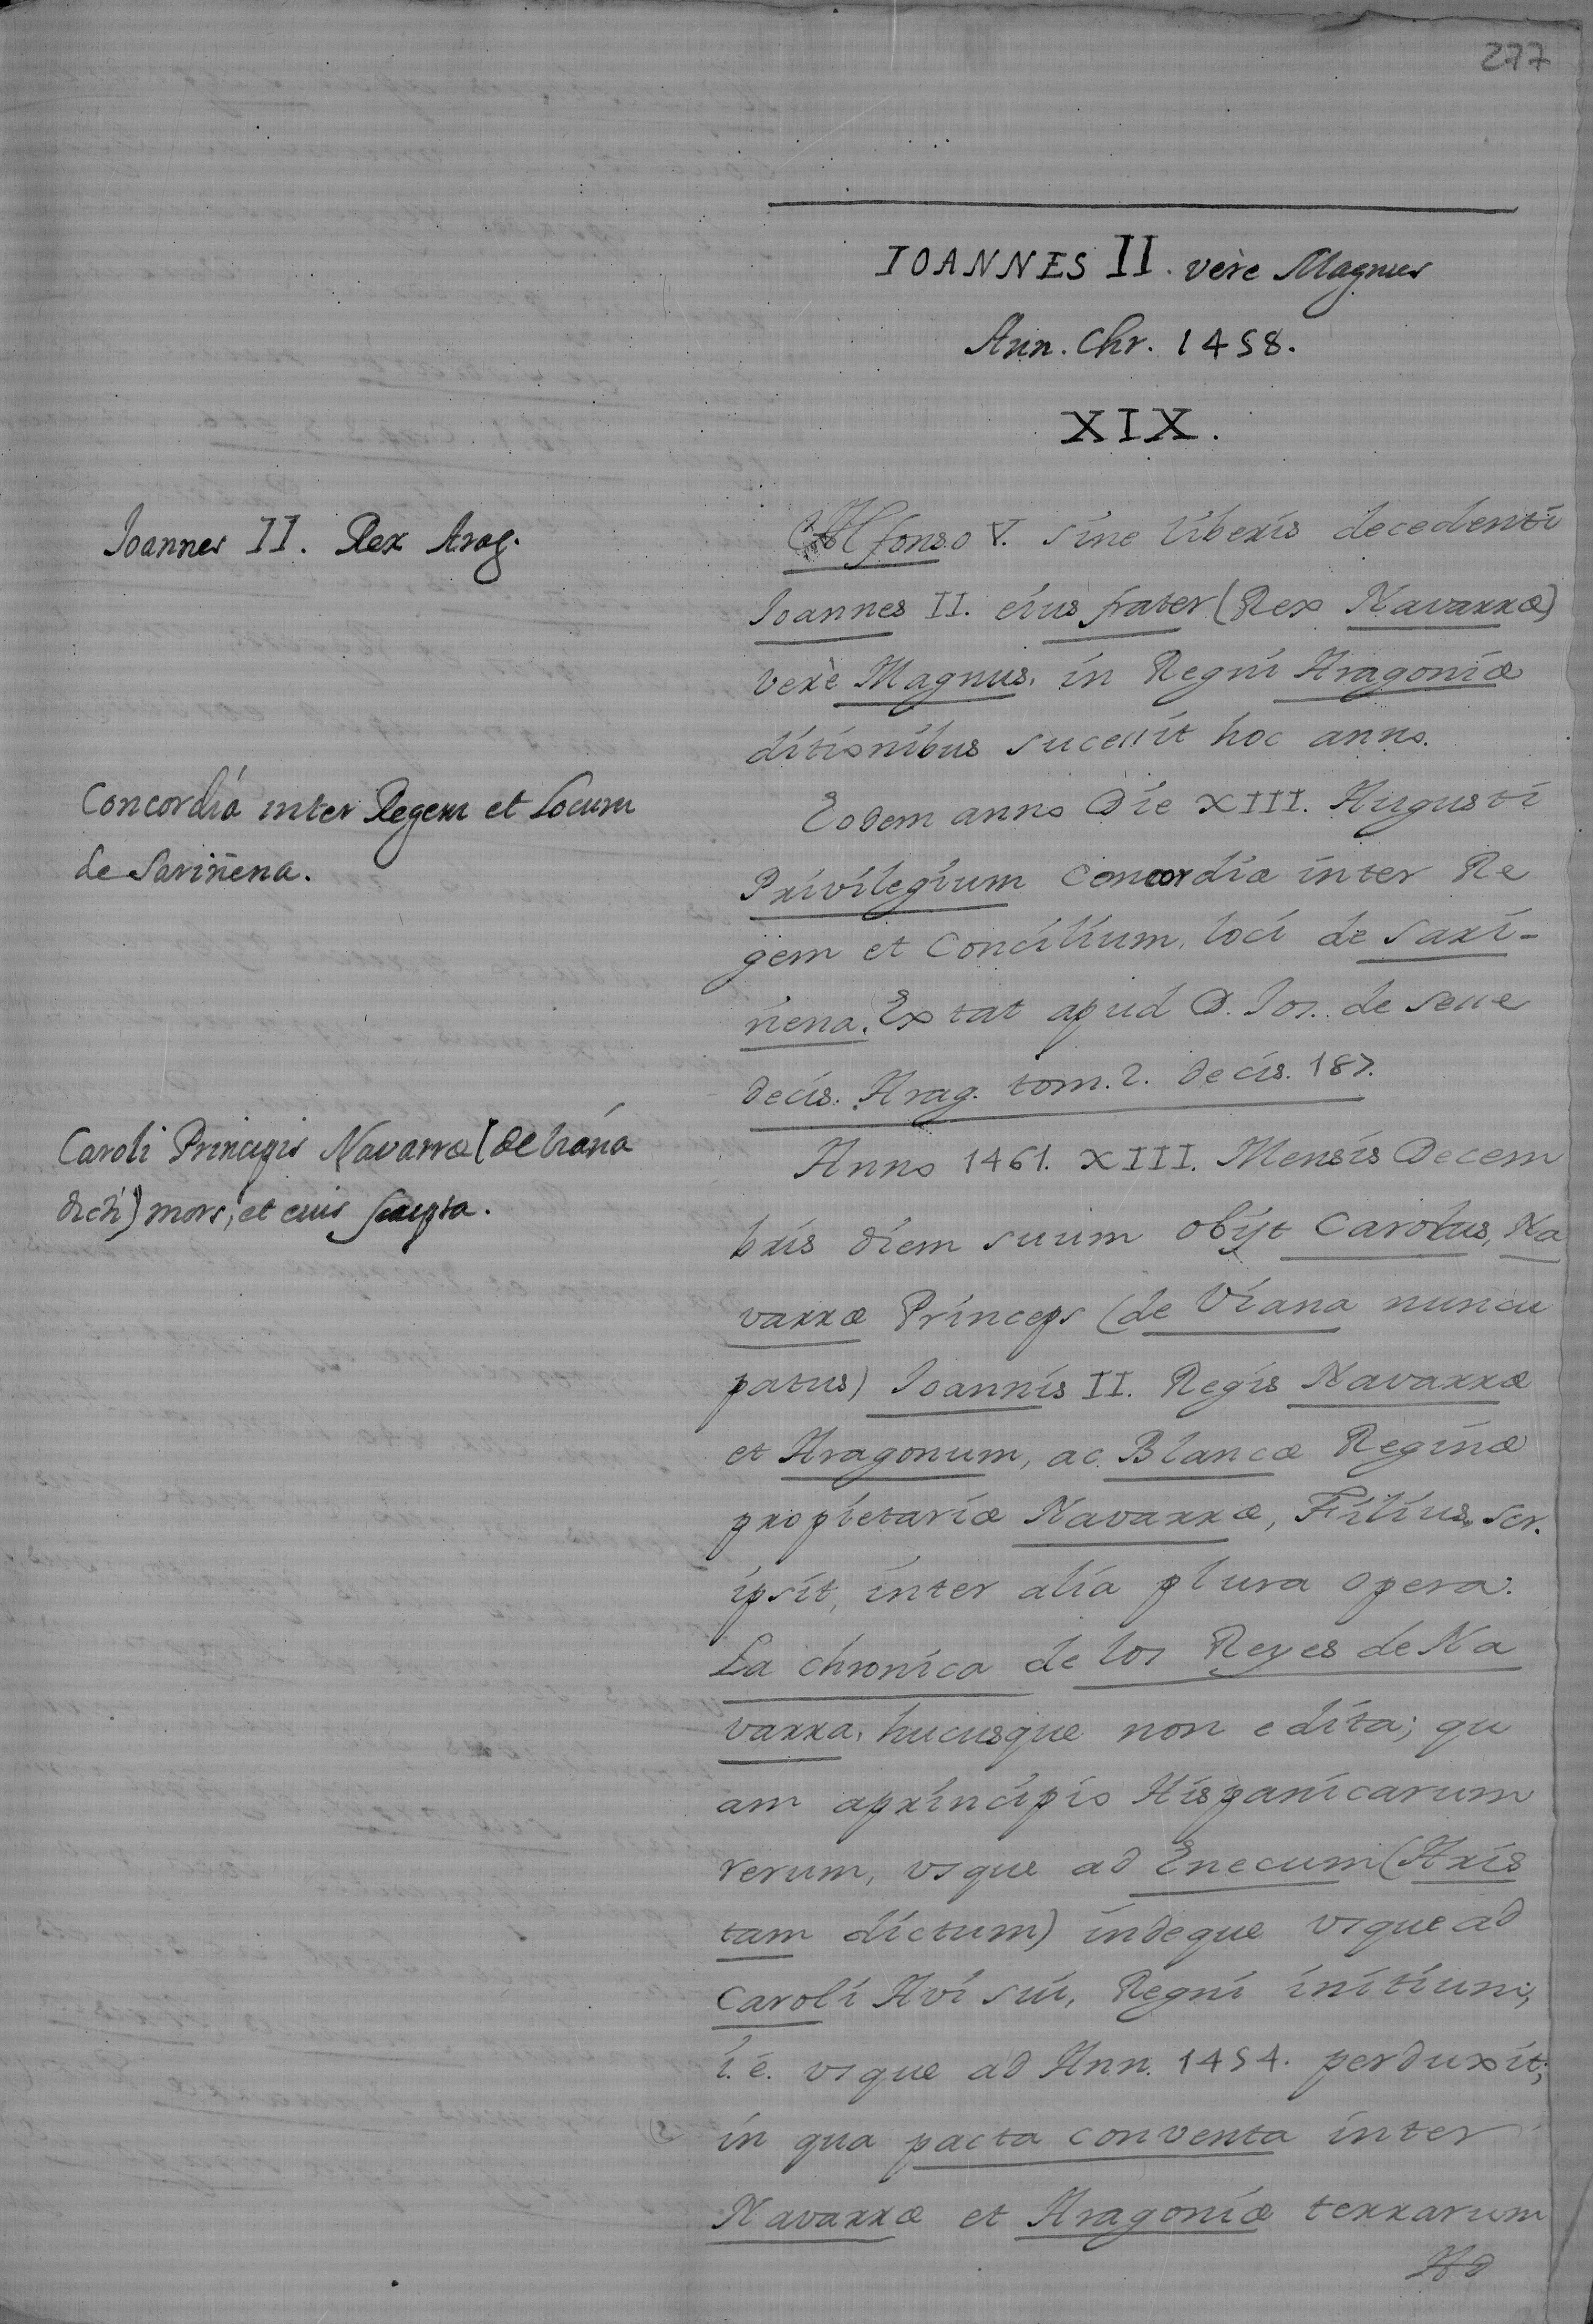 277
IOANNES II. verè Magnus
Ann. Chr. 1458.
XIX.
Ioannes II. Rex Arag.
Alfonso V. sine liberis decedenti
Ioannes II. eius frater (Rex Navarræ)
verè Magnus, in Regni Aragoniæ
ditionibus sucessit hoc anno.
Concordia inter Regem et Locum
de Sariñena.
Eodem anno Die XIII. Augusti
Privilegium Concordiæ inter Re
gem et Concilium, loci de Sari-
ñena. Extat apud D. Ios. de Sesse
decis. Arag. tom. 2. decis. 187.
Caroli Principis Navarræ (de Viana
dicti) mors, et eius scripta.
Anno 1461. XIII. Mensis Decem
bris diem suum obijt Carolus, Na
varræ Princeps (de Viana nuncu
patus) Ioannis II. Regis Navarræ
et Aragonum, ac Blancæ Reginæ
propietariæ Navarræ, Filius, scr.
ipsit, inter alia plura opera.
La chronica de los Reyes de Na
varra, hucusque non edita; qu
am aprincipio Hispanicarum
rerum, vsque ad Enecum (Aris
tam dictum) indeque vsque ad
Caroli Avi sui, Regni initium;
i. e. vsque ad Ann. 1454. perduxit;
in qua pacta conventa inter
Navarræ et Aragoniæ terrarum
Ad